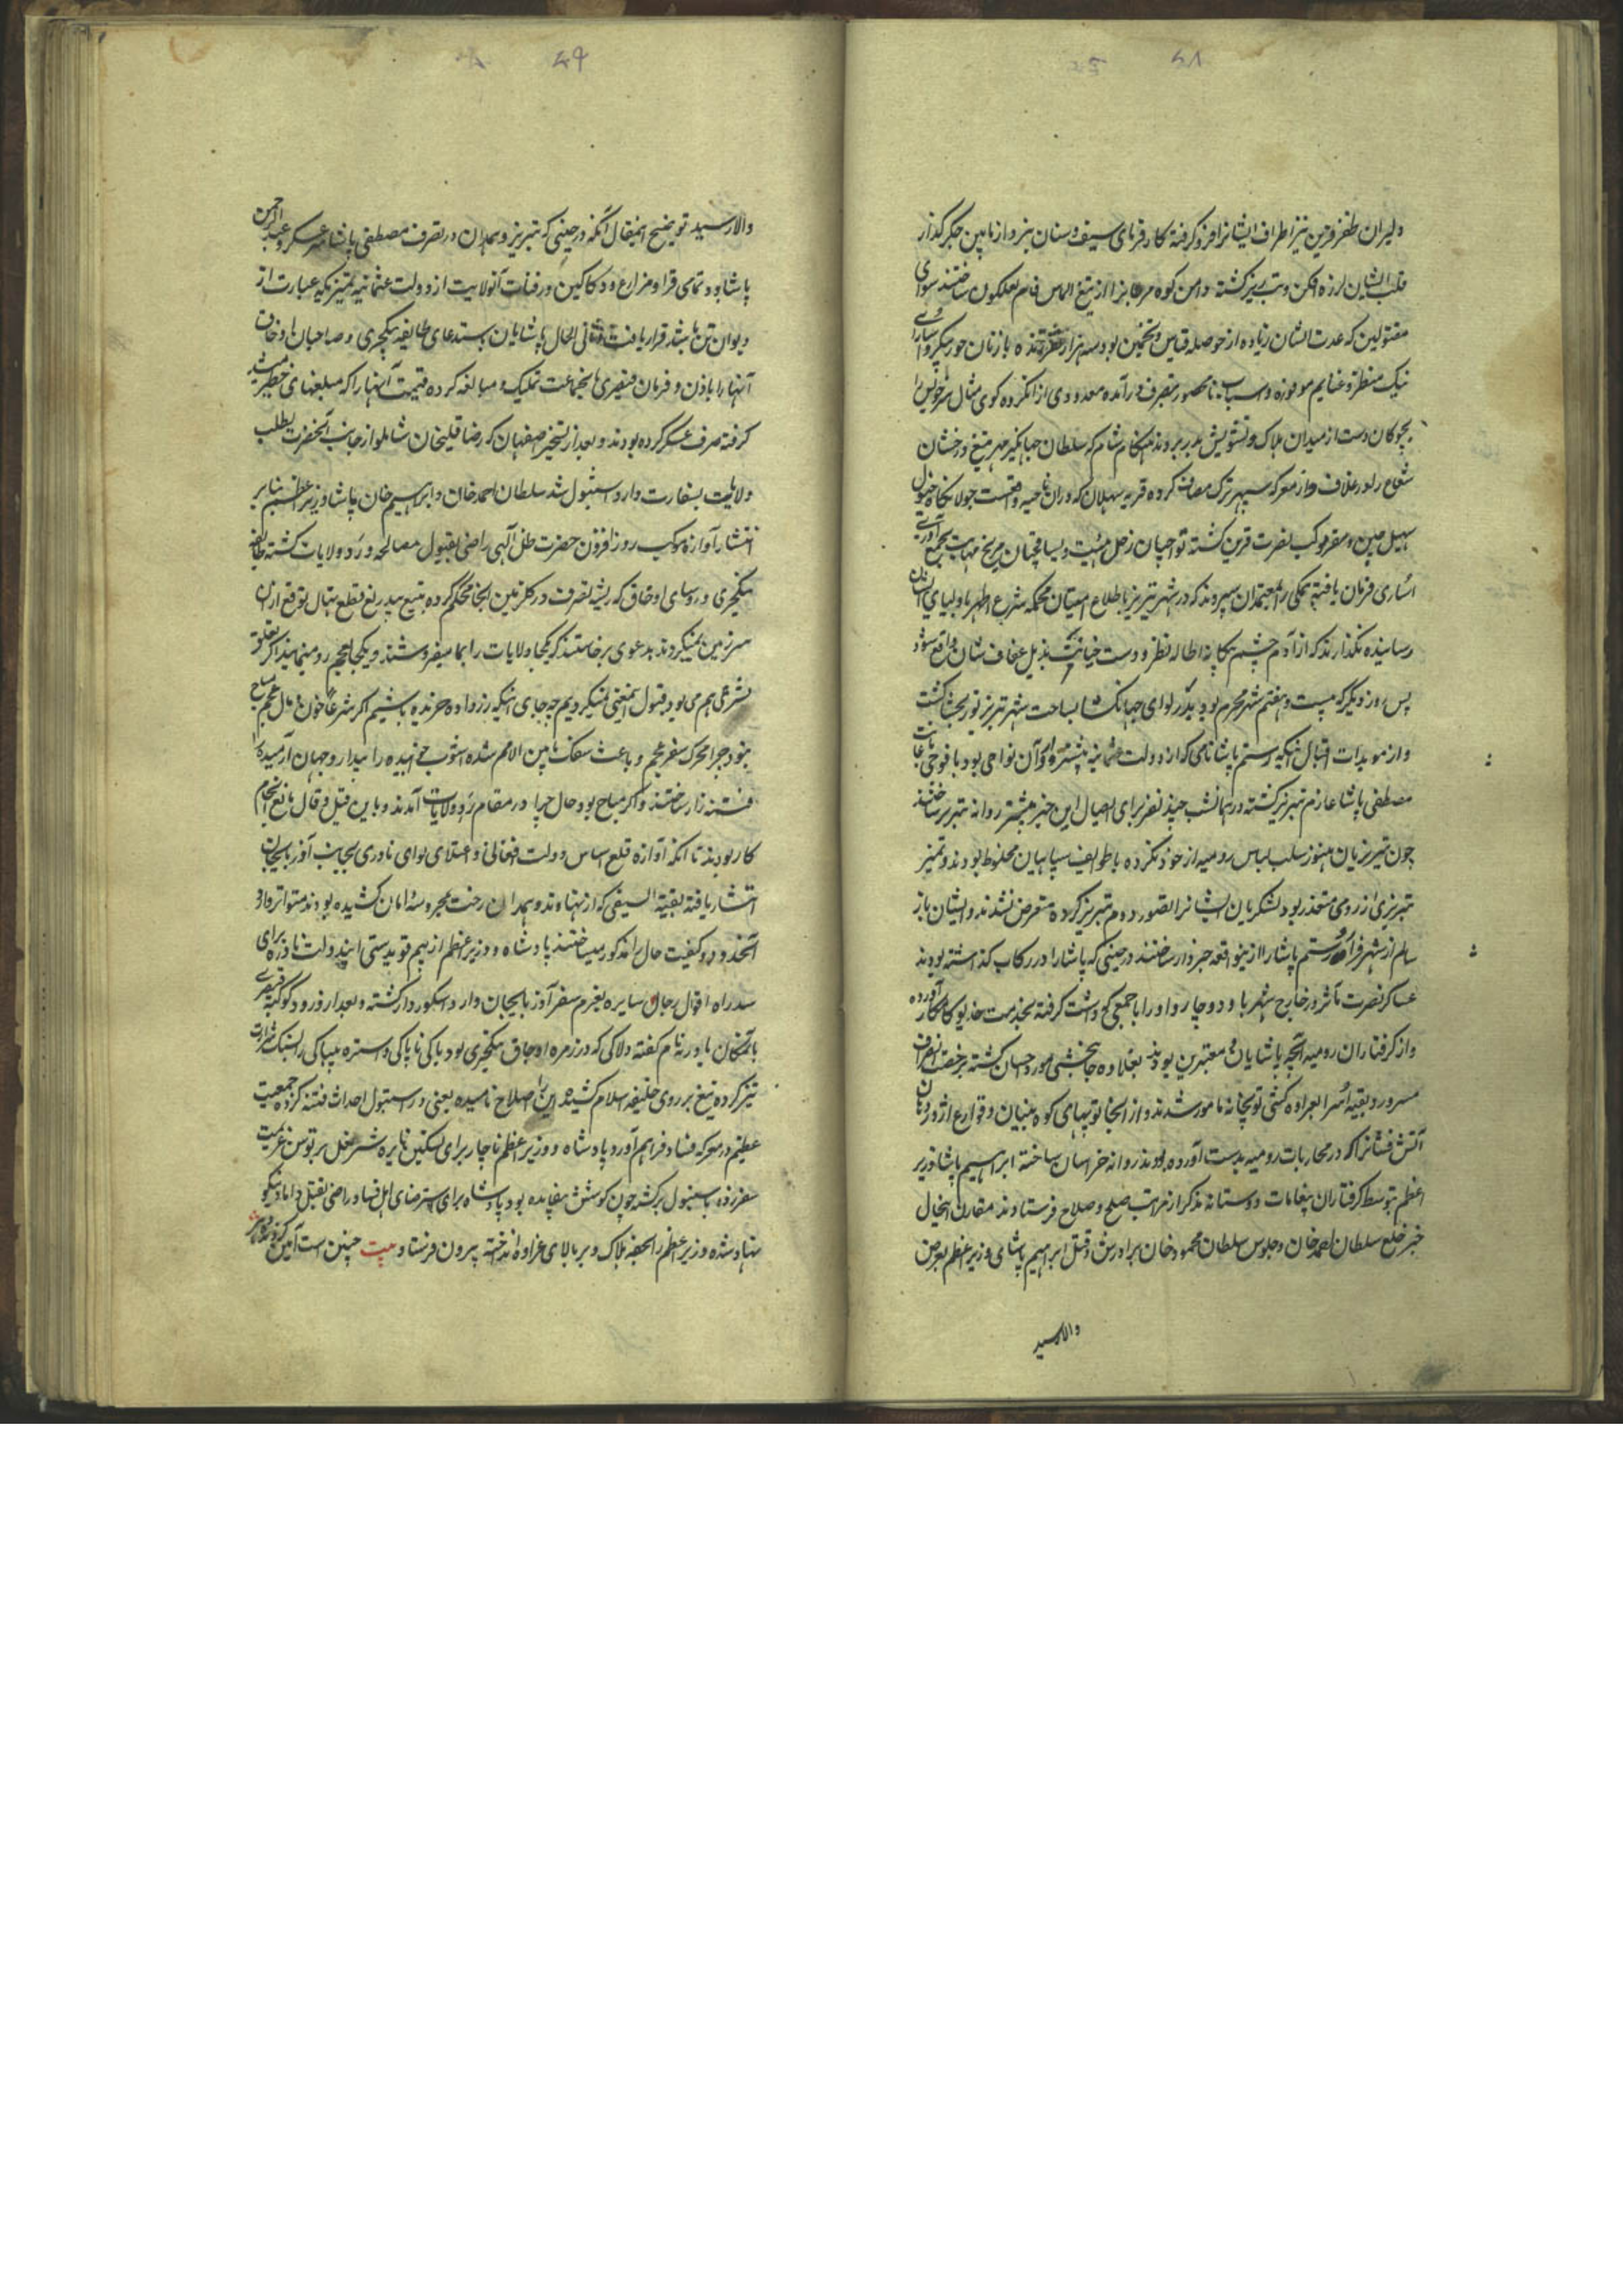 ۶۸
دلیران ظفرقرین نیز اطراف ایشانرا فرو گرفته کارفرمای سیف و سنان
قلب ایشان لرزه افکن و تب ریز گشته دامن کوه از تیغ الماس فام لعلگون ساختند سوای
مقتولین که عدت ایشان زیاده از حوصله قیاس و تخمین بود سه هزار نفر زنده با زنان حور پیکر و اسارای
نیک منظر و غنایم موفوره و اسباب نامحصور بتصرف درآمده معدودی از آنگروه گوی مثال سر خویش را
بچوکان دست از میدان هلاک و تشویش بدر بردند هنگام شام که سلطان جهانگیر مهر تیغ درخشان
شعاع را در غلاف و از معرکه سپهر ترک مصاف کرده قریه سهلان که در آن ناحیه واقعست جولانگاه خیول
سهیل جبین و مقر موکب نصرت قرین گشته تواچیان زحل هیئت و یساقچیان مریخ مهابت بجمع آوری
اساری فرمان یافته همگی را بمعتمدان سپردند که در شهر تبریز باطلاع امینان محکمه شرع اطهر باولیای ایشان
رسانیده نگذارند که از آدم چشم بیگانه اطاله نظر و دست خیانت بذیل عفاف شان واقع شود
پس روز دیگر که بیست و هفتم شهر محرم بود لوای جهانگشا بساحت شهر تبریز نوربخشا گشت
و از مویدات اقبال اینکه رستم پاشا نامی که از دولت عثمانیه آن نواحی بود با فوجی
مصطفی پاشا عازم تبریز گشته در همانشب چند نفر برای ایصال این خبر پیشتر روانه تبریز ساختند
چون تبریزیان هنوز سلب لباس رومیه از خود نکرده با طوایف سپاهیان مخلوط بودند و تمیز
تبریزی از رومی متعذر بود لشکریان ایشانرا تصور مردم تبریز کرده متعرض نشدند و ایشان باز
سالم از شهر فرار و رستم پاشا را از اینواقعه خبردار ساختند در حینی که پاشا را در رکاب گذاشته بودند
عساکر نصرت مآثر در خارج شهر با او دوچار و او را با جمعی کج داشت گرفته بخدمت خدیو کامکار آورده
و از گرفتاران رومیه آنچه پاشایان و معتبرین بودند بعلاوه جانبخشی مورد احسان گشته برخصت انصراف
مسرور و بقیه اسرا بعراده کشی توپخانه مامور شدند و از آنجا توپهای کوه بنیان و قوارع اژدر دهان
آتش فشانرا که در محاربات رومیه بدست آورده بودند روانه خراسان ساخته ابراهیم پاشا وزیر
اعظم بتوسط گرفتاران پیغامات دوستانه مذکر از مراتب صلح و صلاح فرستادند مقارن اینحال
خبر خلع سلطان احمد خان و جلوس سلطان محمود خان برادرش و قتل ابراهیم پاشای وزیر اعظم بعرض
والا رسید
۶۹
والا رسید توضیح اینمقال آنکه در حینی که تبریز و همدان در تصرف مصطفی پاشا سرعسکر و عبدالرحمن
پاشا بود تمامی قرا و مزارع و دکاکین و رقبات آنولایت از دولت عثمانیه بتمیز که عبارت از
دیوان تن باشد قرار یافت و ثانی الحال پاشایان باستدعای طایفه ینگچری و صاحبان اوجاق
آنها را باذن و فرمان قیصری بآنجماعت تملیک و مبالغه کرده قیمت آنها را که مبلغهای خطیر میشد
گرفته صرف عسکر کرده بودند و بعد از تسخیر اصفهان که رضا قلیخان شاملو از جانب آنحضرت بطلب
ولایت بسفارت وارد استنبول شد سلطان احمد خان و ابراهیم خان پاشا وزیر اعظم بنابر
انتشار آوازه موکب روز افزون حضرت ظل آلهی راضی بقبول مصالحه و رد ولایات گشته طایفه
ینگچری و روسای اوجاق که ریشه تصرف در گلزمین آنجا محکم کرده بتیغ بیدریغ قطع نهال توقع از آن
سرزمین نمیکردند بدعوی برخاستند که یکجا ولایات را بما میفروشند و یکجا بعجم رد مینمایند اگر تعلق
بشرعی هم می بود قبول اینمعنی نمیکردیم چه جای اینکه زر داده خریده باشیم اگر شرعا خون و مال عجم مباح
نبود چرا محرک سفر عجم و باعث سفک مابین الامم شده آشوب خوابیده را بیدار و جهان آرمیده را
فتنه زار ساختند و اگر مباح بود حال چرا در مقام رد ولایات آمدند و باین قیل و قال مانع انجام
کار بودند تا آنکه آوازه قلع اساس دولت افغانی و اعتلای لوای نادری بجانب آذربایجان
انتشار یافته بقیة السیفی که از نهاوند و همدان رخت بحجره امان کشیده بودند متواتر وارد
آنحدود و کیفیت حال را مذکور میساختند پادشاه و وزیر اعظم از بیم قویدستی ایندولت نادره برای
سد راه اقوال رجال سایره بعزم سفر آذربایجان وارد اسکودار گشته و بعد از ورود کوکبه قیصری
بآنمکان پاترونا نام گفته دلاکی که در زمره اوجاق ینگچری بود باکی ناپاکی و استره بیباکی را بسنگ شرارت
تیز کرده تیغ بر روی خلیفه اسلام کشیده این را اصلاح نامیده یعنی در استنبول احداث فتنه کرده جمعیت
عظیم در معرکه فساد فراهم آورد پادشاه و وزیر اعظم ناچار برای تسکین نایره شر مخل بر توسن عزیمت
سفر زده باستنبول برگشته چون کوشش بیفایده بود پادشاه برای استرضای اهل فساد راضی بقتل داماد نیکو
نهاد شده وزیر اعظم را بخفه هلاک و بر بالای عراده انداخته بیرون فرستاد بیت چنین است آئین